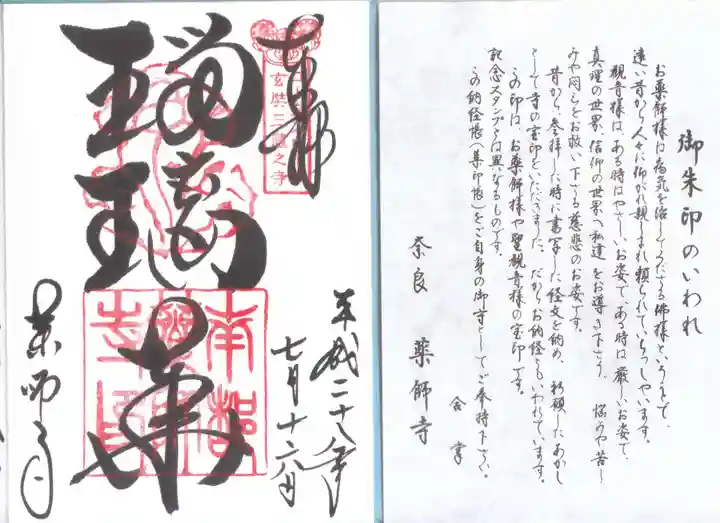 奉拝
玄奘三蔵之寺
瑠璃華
平成二十八年
七月十六日
薬師寺
南都
御朱印のいわれ
お薬師様は病気を治して下さる佛様ということで、
遠い昔から人々に仰がれ親しまれ頼られていらっしゃいます。
観音様は、ある時はやさしいお姿で、ある時は厳しいお姿で、
真理の世界、信仰の世界へ私達をお導き下さり、悩みや苦し
みや悶えをお救い下さる慈悲のお姿です。
昔から参拝した時に書写した経文を納め、祈願したあかし
として寺の宝印をいただきました。だからお納経ともいわれています。
この印は、お薬師様や聖観音様の宝印です。
記念スタンプとは異なるものです。
この納経帳(集印帳)をご自身の御守としてご奉持下さい。
合掌
奈良 薬師寺